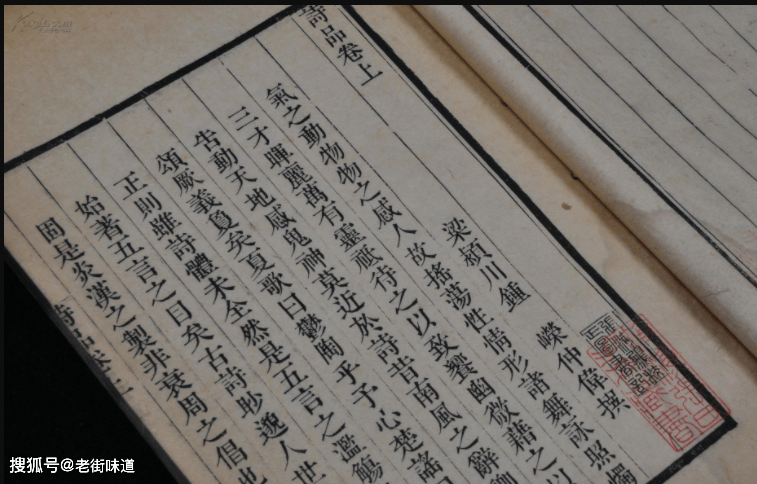 詩品卷上
梁潁川鍾 嶸仲偉撰
氣之動物物之感人故搖蕩性情形諸舞詠照燭
三才暉麗萬有靈祇待之以致饗幽微藉之以
告動天地感鬼神莫近於詩昔南風之辭卿
頌厥義夐矣夏歌曰鬱陶乎予心楚謠曰
正則雖詩體未全然是五言之濫觴
始著五言之目矣古詩眇邈人世
固是炎漢之製非衰周之倡也
詩品卷上
搜狐号@老街味道